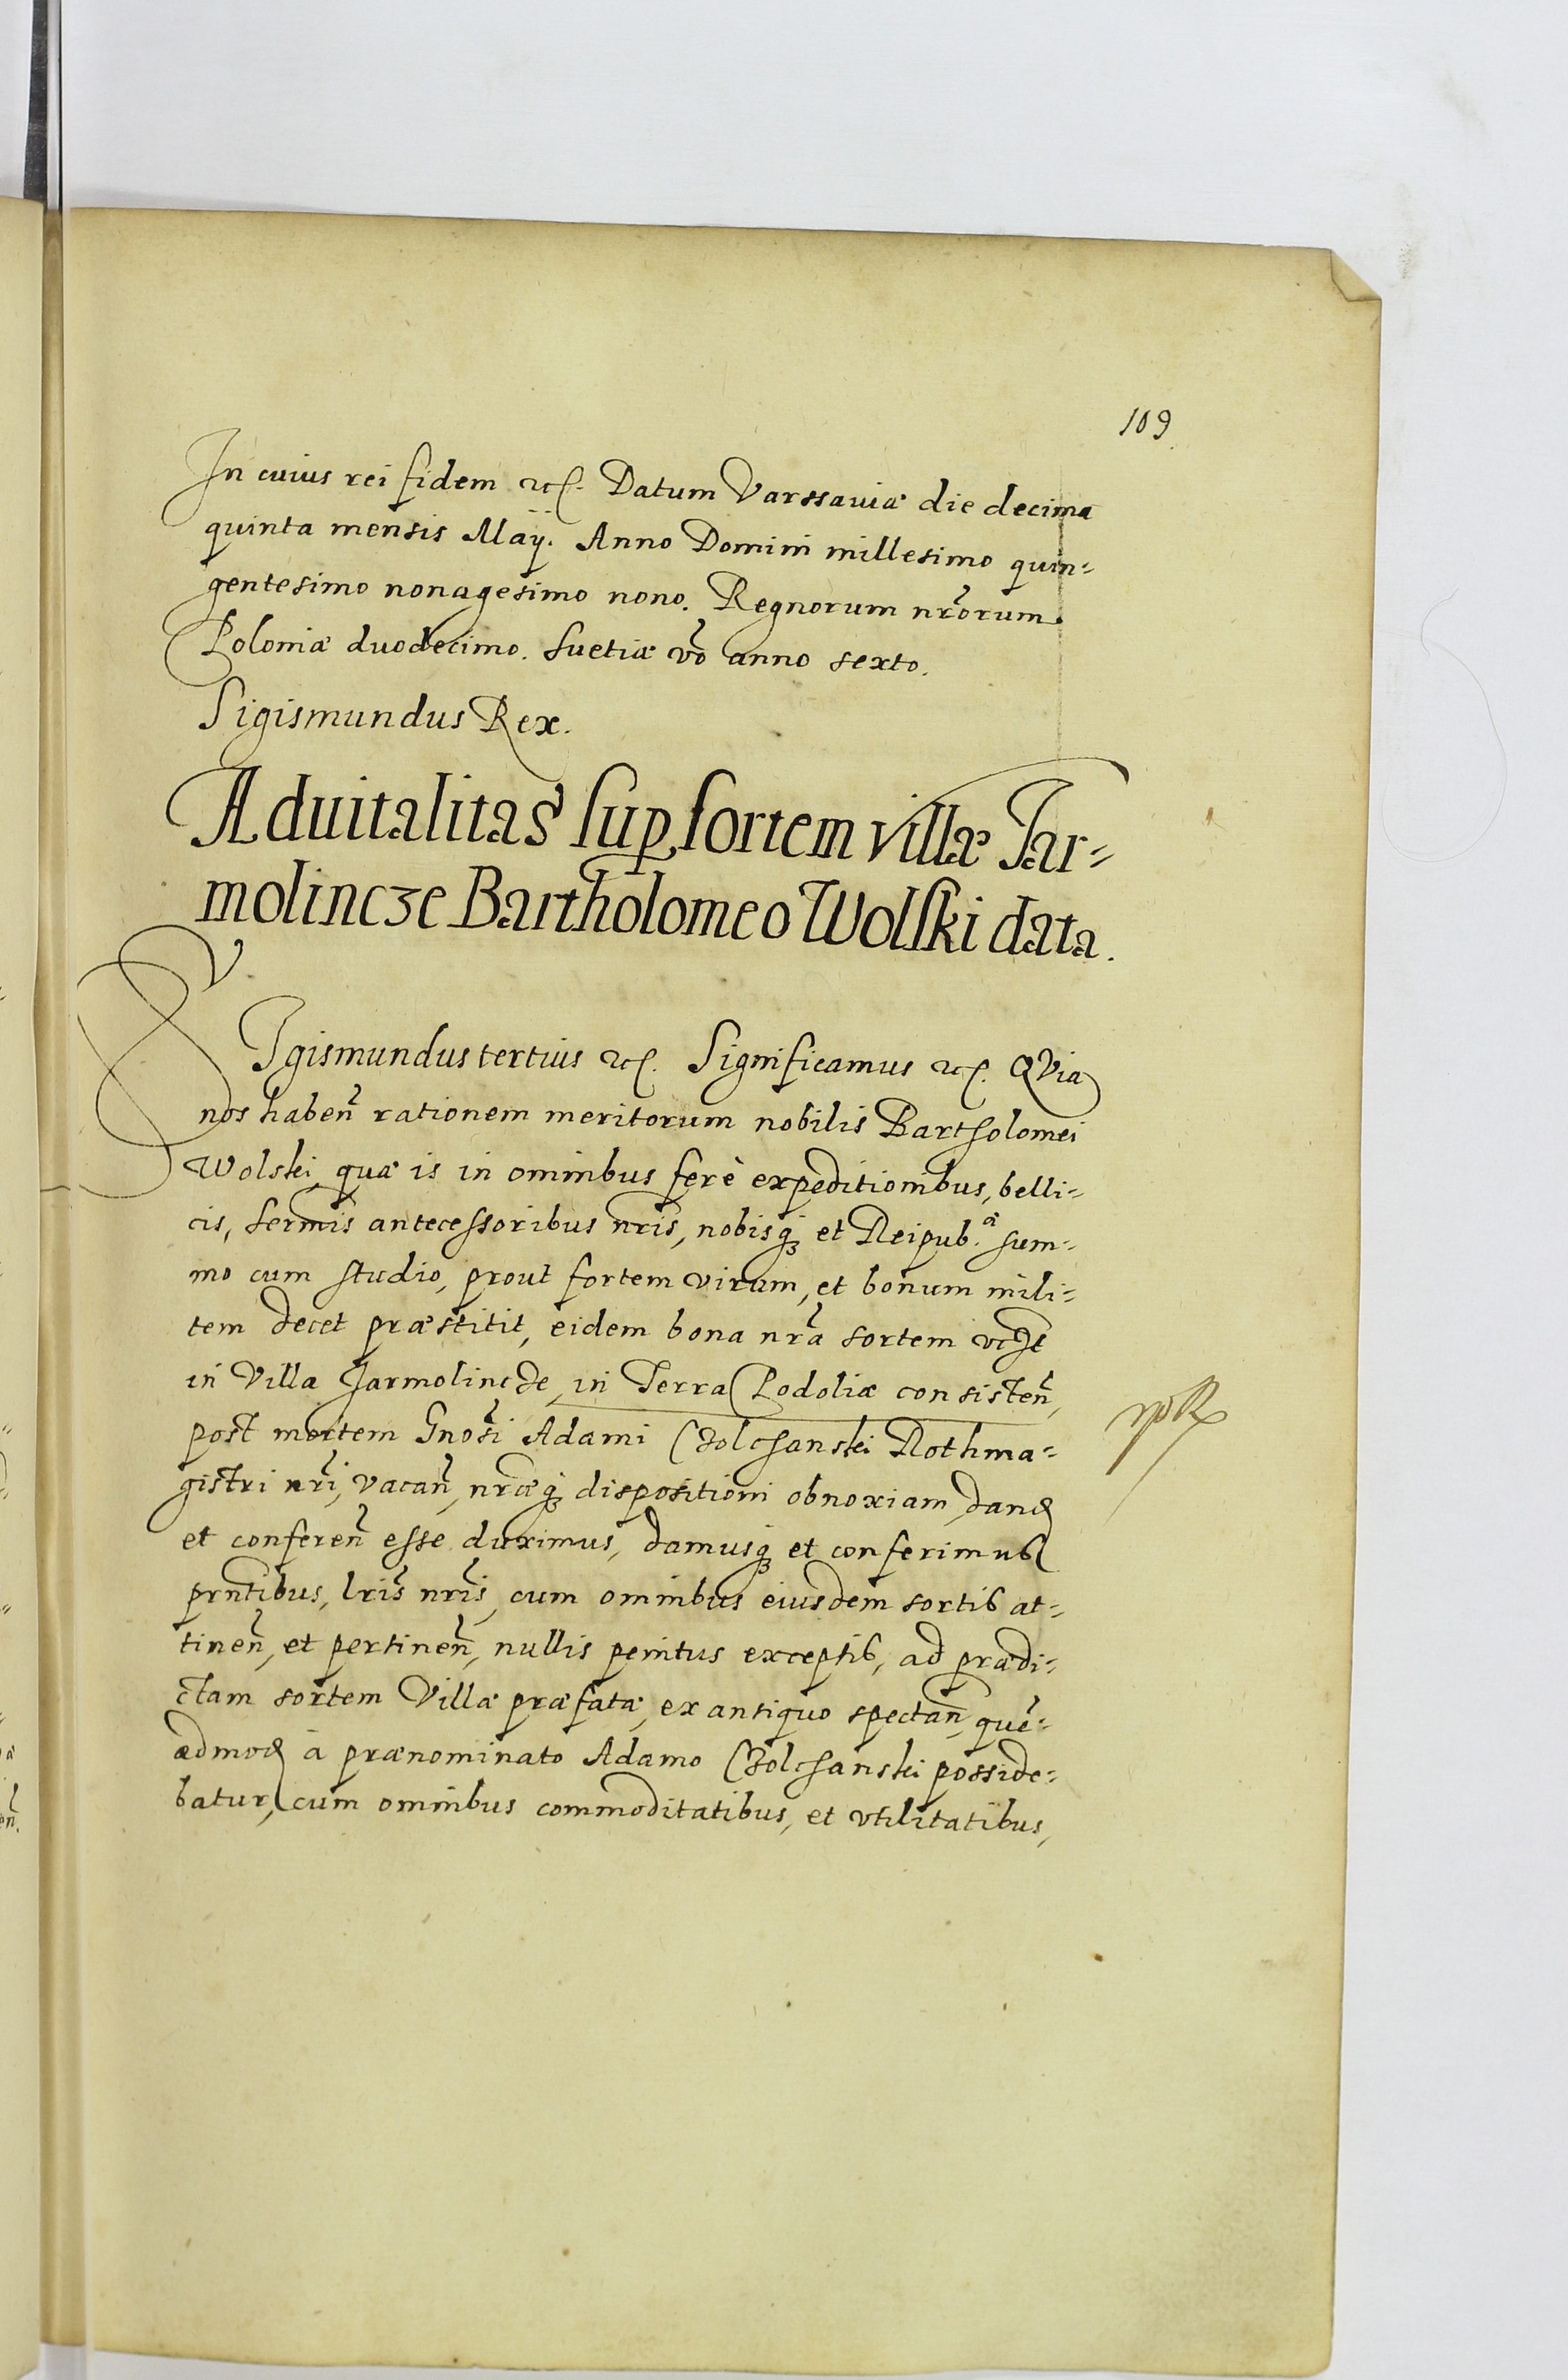 109
In cuius rei fidem etc. Datum Varssauiæ die decima
quinta mensis Maÿ. Anno Domini millesimo quin=
gentesimo nonagesimo nono. Regnorum nr̃orum
Poloniæ duodecimo. Suetiæ võ anno sexto.
Sigismundus Rex.
Aduitalitas sup sortem villæ Jar=
molincze Bartholomeo Wolski data.
SIgismundus tertius etc. Significamus etc. QVia
nos habeñ rationem meritorum nobilis Bartholomei
Wolski, quæ is in omnibus ferè expeditionibus, belli=
cis, sermis antecessoribus nris, nobisq; et Reipub.æ sum=
mo cum studio, prout fortem virum, et bonum mili=
tem decet præstitit, eidem bona nr̃a sortem vcȝt
in Villa Jarmolincze, in Terra Podoliæ consisteñ,
post mortem Gnosi Adami Czolchanski Rothma=
gistri nr̃i, vacañ, nræq; dispositioni obnoxiam, dand
et confereñ esse duximus, damusq; et conferimus
prntibus, lris nris, cum omnibus eiusdem sortis at=
tineñ, et pertineñ, nullis penitus exceptis, ad prædi=
ctam sortem Villæ præfatæ, ex antiquo spectañ, quẽ=
admod à prænominato Adamo Czolchanski posside=
batur, cum omnibus commoditatibus, et vtilitatibus,